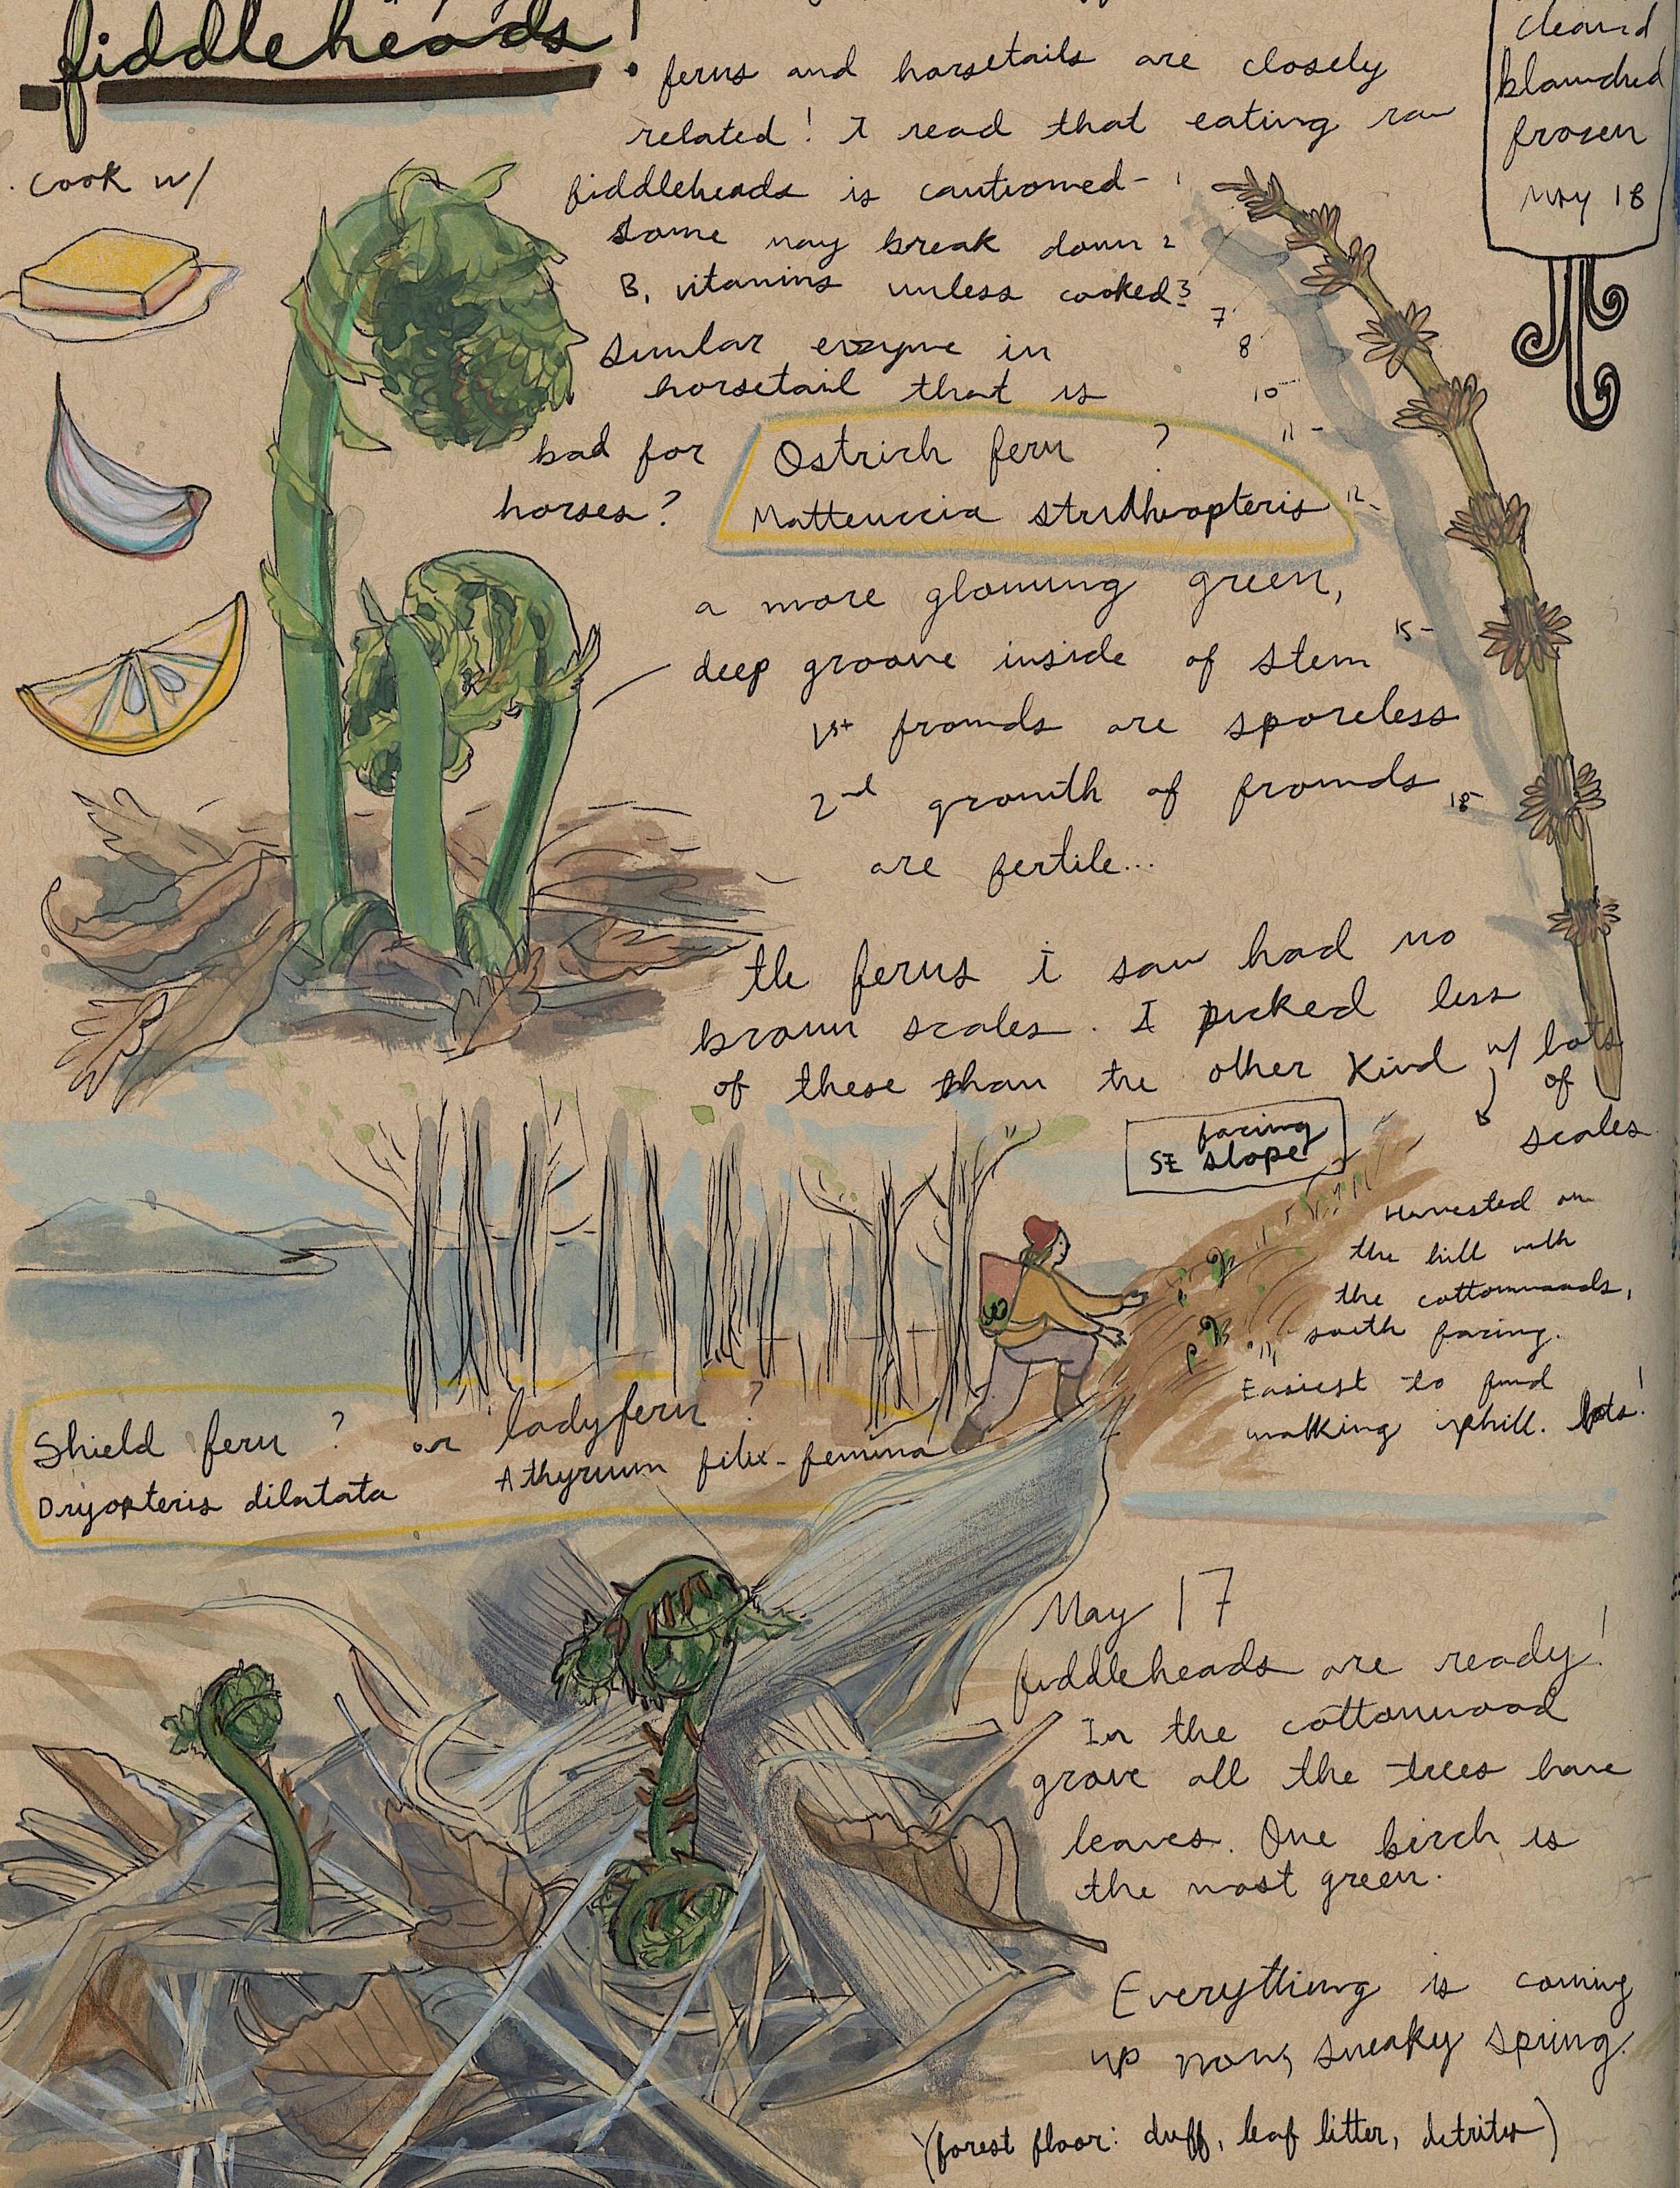 fiddleheads!
cleaned
blanched
frozen
May 18
cook w/
• ferns and horsetails are closely
related! I read that eating raw
fiddleheads is cautioned-
some may break down
B, vitamins unless cooked?
Similar enzyme in
horsetail that is
bad for
horses?
2
3
7
8
10
11
12
15
18
Ostrich fern ?
Matteuccia struthiopteris
a more glowing green,
deep groove inside of stem
1st fronds are sporeless
2nd growth of fronds
are fertile...
the ferns i saw had no
brown scales. I picked less
of these than the other kind w/ lots
of
scales
facing
SE slope
Harvested on
the hill with
the cottonwoods,
south facing.
Easiest to find
walking uphill. lots!
Shield fern ? or ladyfern ?
Dryopteris dilatata Athyrium filix-femina
May 17
fiddleheads are ready!
In the cottonwood
grove all the trees have
leaves. One birch is
the most green.
Everything is coming
up now, sneaky spring.
(forest floor: duff, leaf litter, detritus)